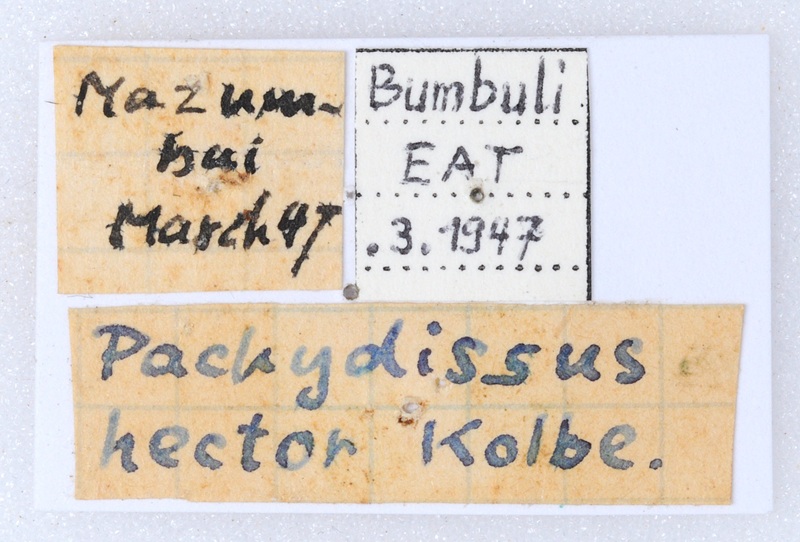 Mazum-
bai
March 47
Bumbuli
EAT
.3.1947
Pachydissus
hector Kolbe.